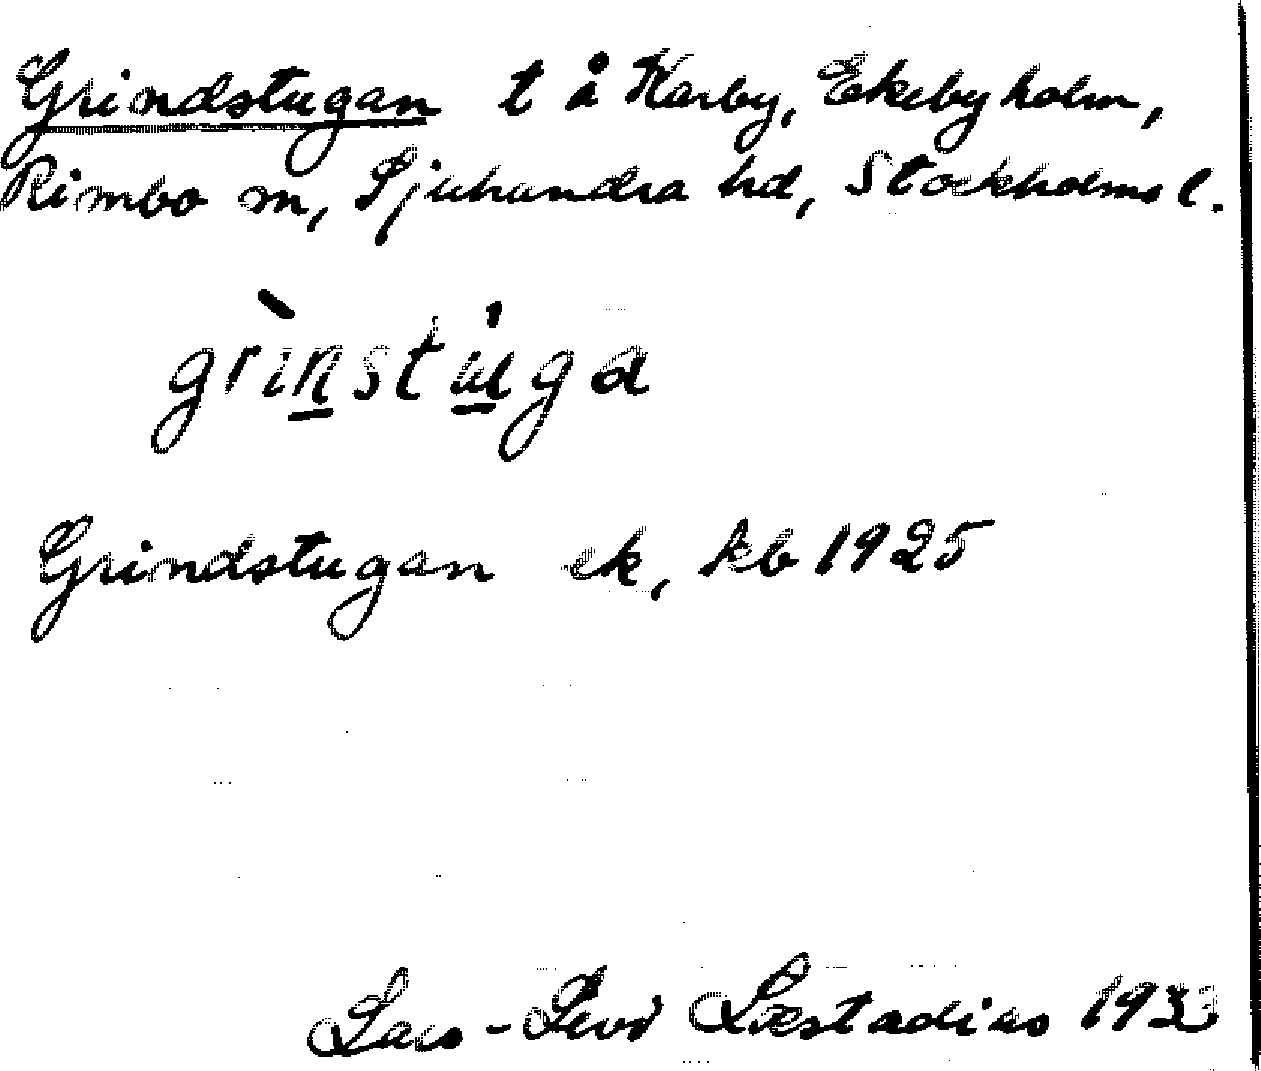 Grindstugan t å Karby, Ekebyholm,
Rimbo sn, Sjuhundra hd, Stockholms l.
grìnstúga
Grindstugan ek, kb 1925
Lars-Levi Læstadius 1933